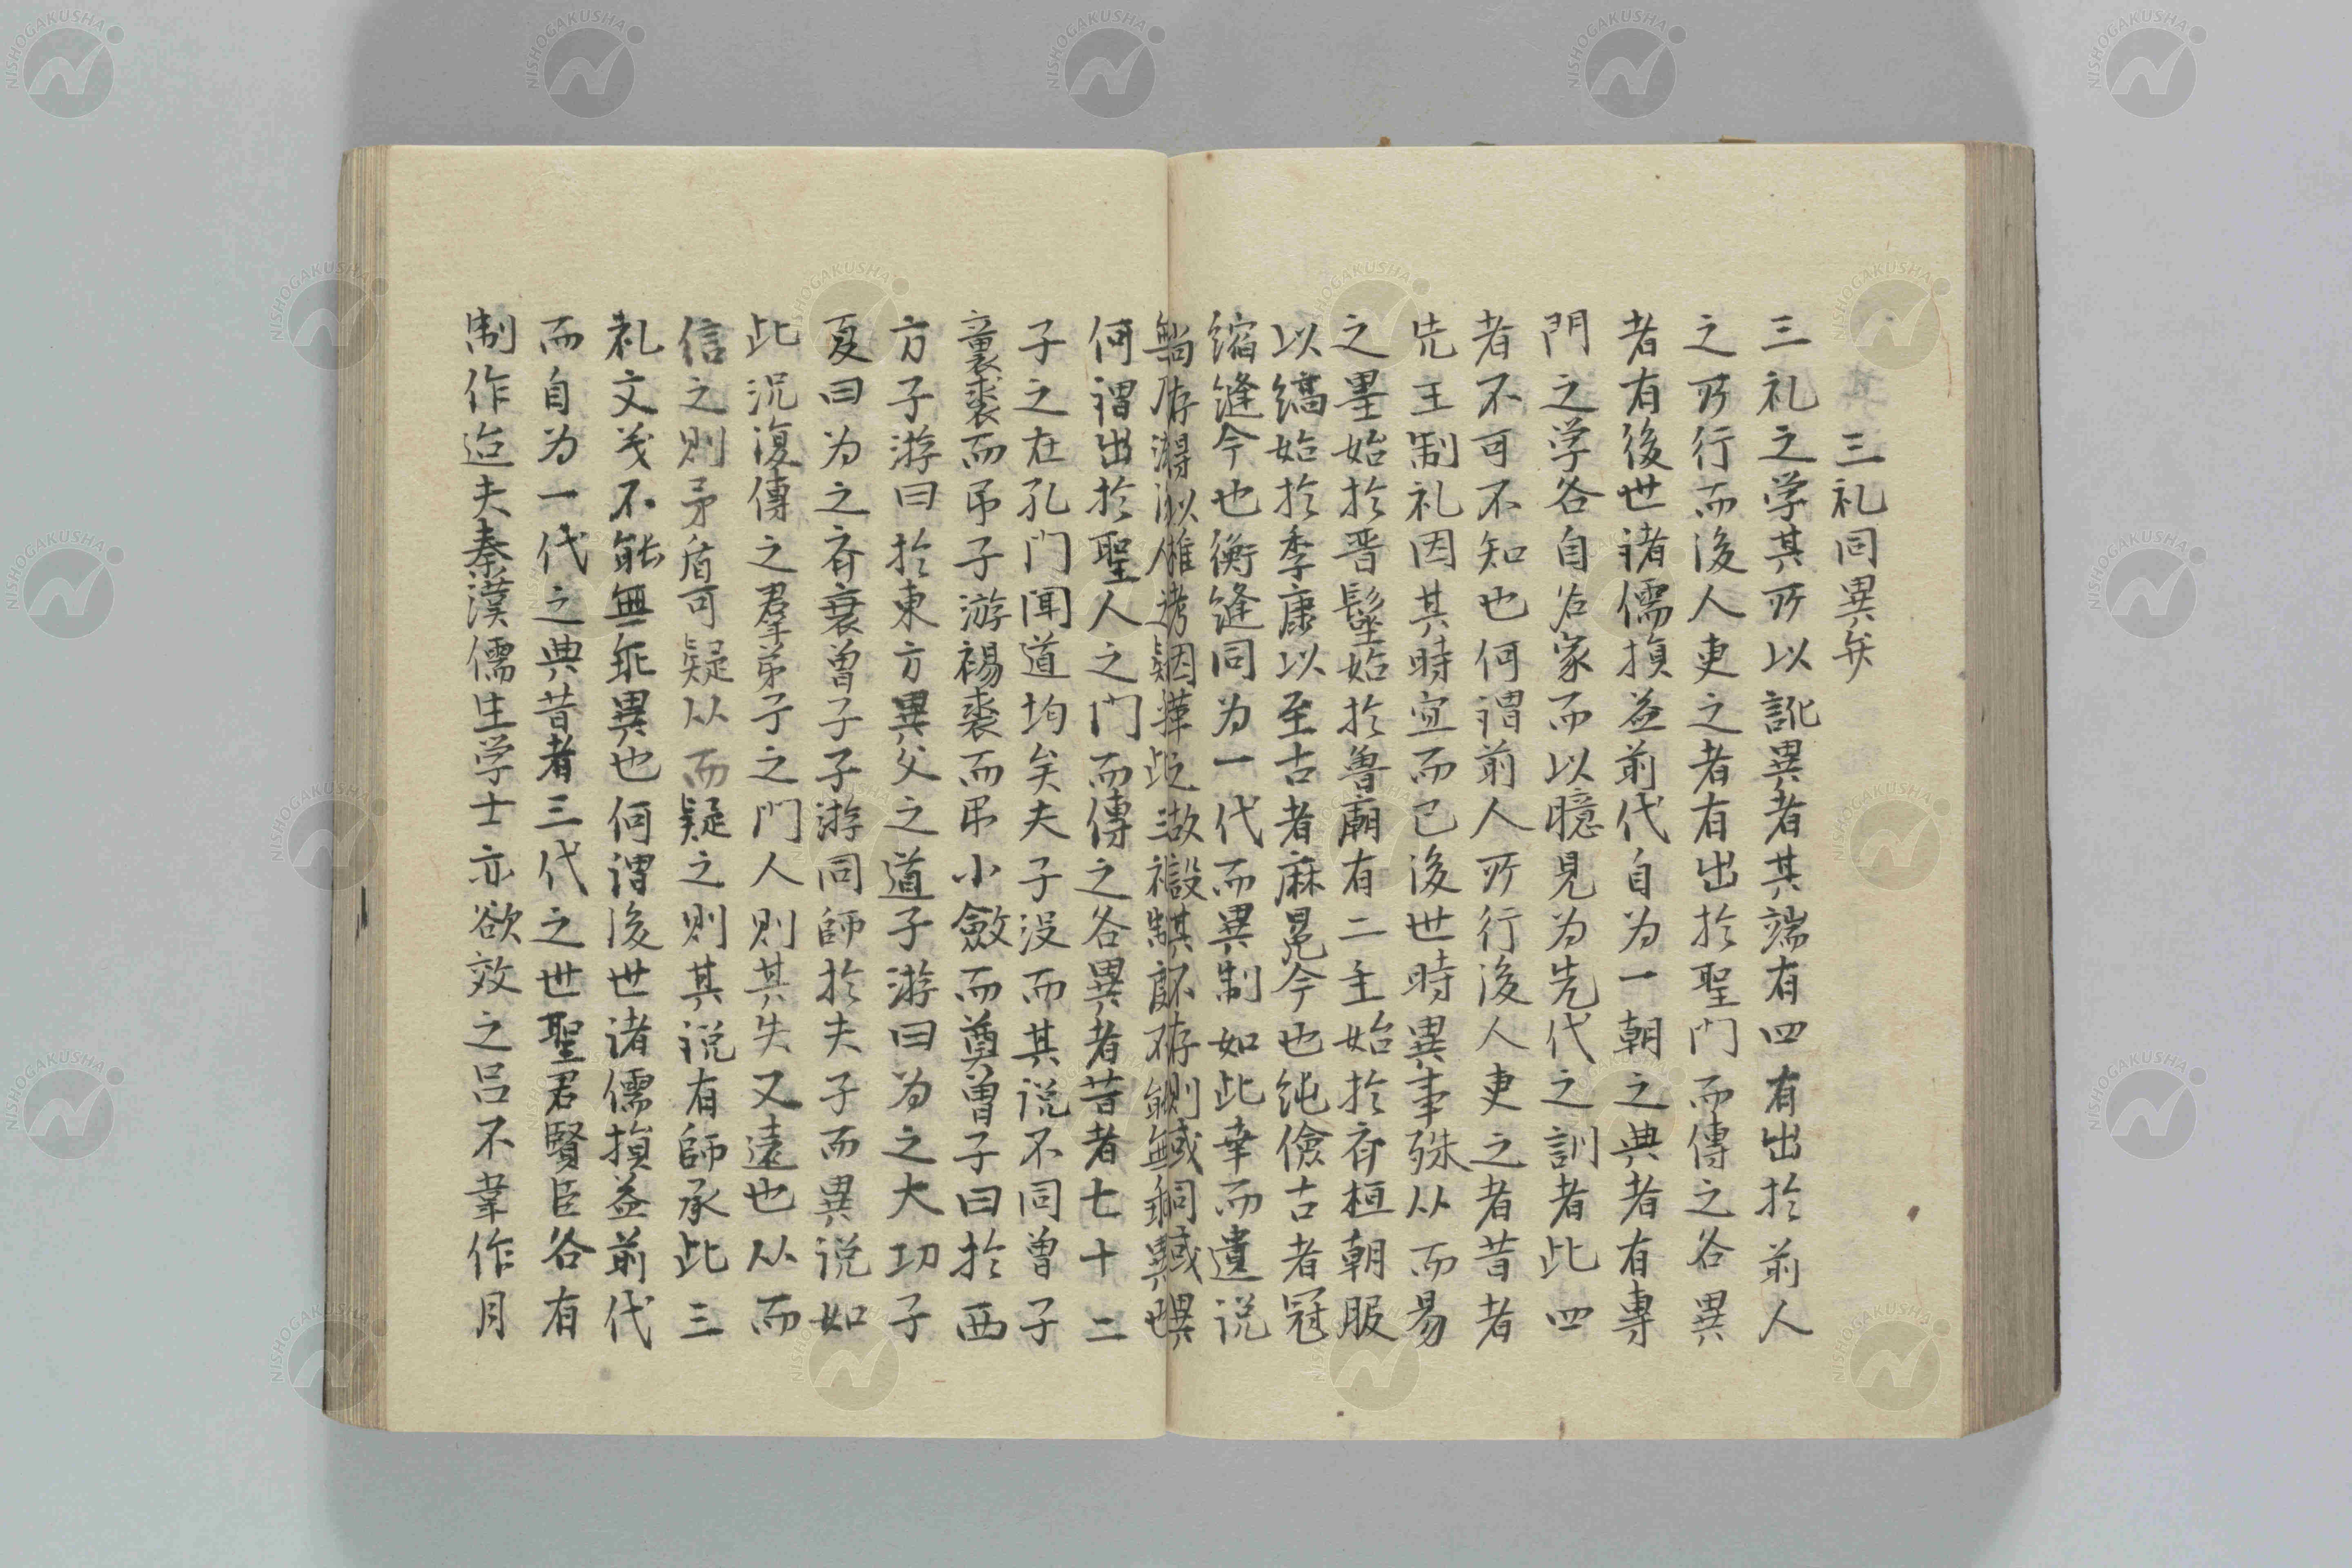 三礼同異弁
三礼之学其所以訛異者其端有四有出於前人
之所行而後人更之者有出於聖門而傳之各異
者有後世諸儒損益前代自为一朝之典者有専
門之学各自名家而以臆見为先代之訓者此四
者不可不知也何謂前人所行後人更之者昔者
先王制礼因其時宜而已後世時異事殊从而易
之墨始於晋髽始於魯廟有二主始於斉桓朝服
以縞始於季康以至古者麻冕今也純儉古者冠
縮縫今也衡縫同为一代而異制如此幸而遺说
何謂出於聖人之门而傳之各異者昔者七十二
子之在孔门闻道均矣夫子没而其说不同曽子
襲裘而吊子游裼裘而吊小斂而奠曽子曰於西
方子游曰於東方異父之道子游曰为之大功子
夏曰为之斉衰曽子子游同師於夫子而異说如
此況復傳之羣弟子之門人則其失又遠也从而
信之則矛盾可疑从而疑之則其说有師承此三
礼文义不能無乖異也何謂後世诸儒損益前代
而自为一代之典昔者三代之世聖君賢臣各有
制作迨夫秦漢儒生学士亦欲效之吕不韋作月